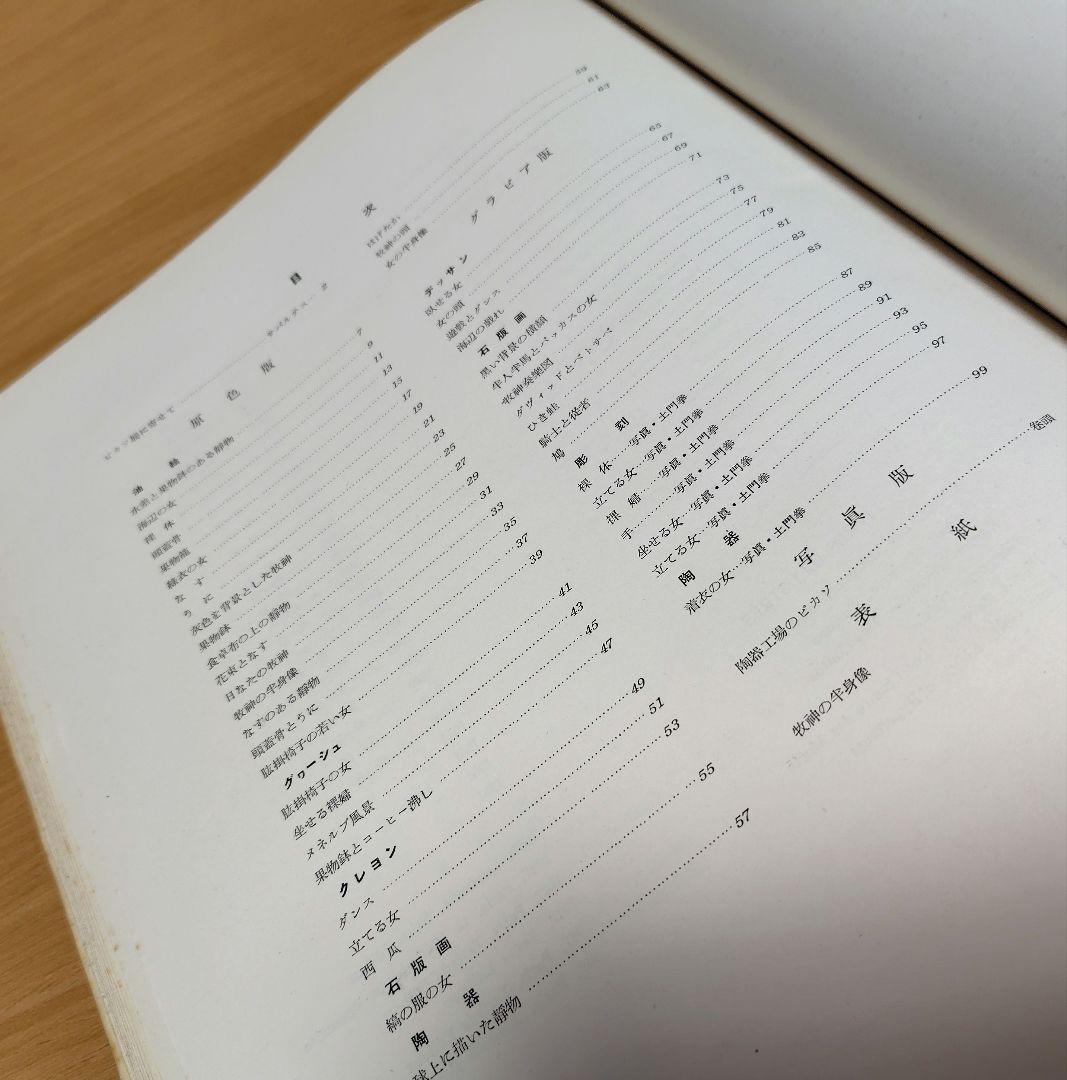 目 次
ピカソ展に寄せて サバルテス 2
原色版
油絵
水差と果物鉢のある靜物 7
海辺の女 9
裸体 11
頭蓋骨 13
果物籠 15
緑衣の女 17
なす 19
うに 21
灰色を背景とした牧神 23
果物鉢 25
食卓布の上の靜物 27
花束となす 29
日なたの牧神 31
牧神の半身像 33
なすのある靜物 35
頭蓋骨とうに 37
肱掛椅子の若い女 39
グワーシュ
肱掛椅子の女 41
坐せる裸婦 43
メネルブ風景 45
果物鉢とコーヒー沸し 47
クレヨン
ダンス 49
立てる女 51
西瓜 53
石版画
縞の服の女 55
陶器
球上に描いた靜物 57
はげたか 59
牧神の頭 61
女の半身像 63
グラビア版
デッサン
臥せる女 65
女の頭 67
遊戯とダンス 69
海辺の戯れ 71
石版画
黒い背景の横顔 73
半人半馬とバッカスの女 75
牧神奏樂図 77
ダヴィッドとベトサベ 79
ひき蛙 81
騎士と従者 83
鳩 85
彫刻
裸体…写眞・土門拳 87
立てる女…写眞・土門拳 89
裸婦…写眞・土門拳 91
手…写眞・土門拳 93
坐せる女…写眞・土門拳 95
立てる女…写眞・土門拳 97
陶器
着衣の女…写眞・土門拳 99
写眞版
陶器工場のピカソ 巻頭
表紙
牧神の半身像